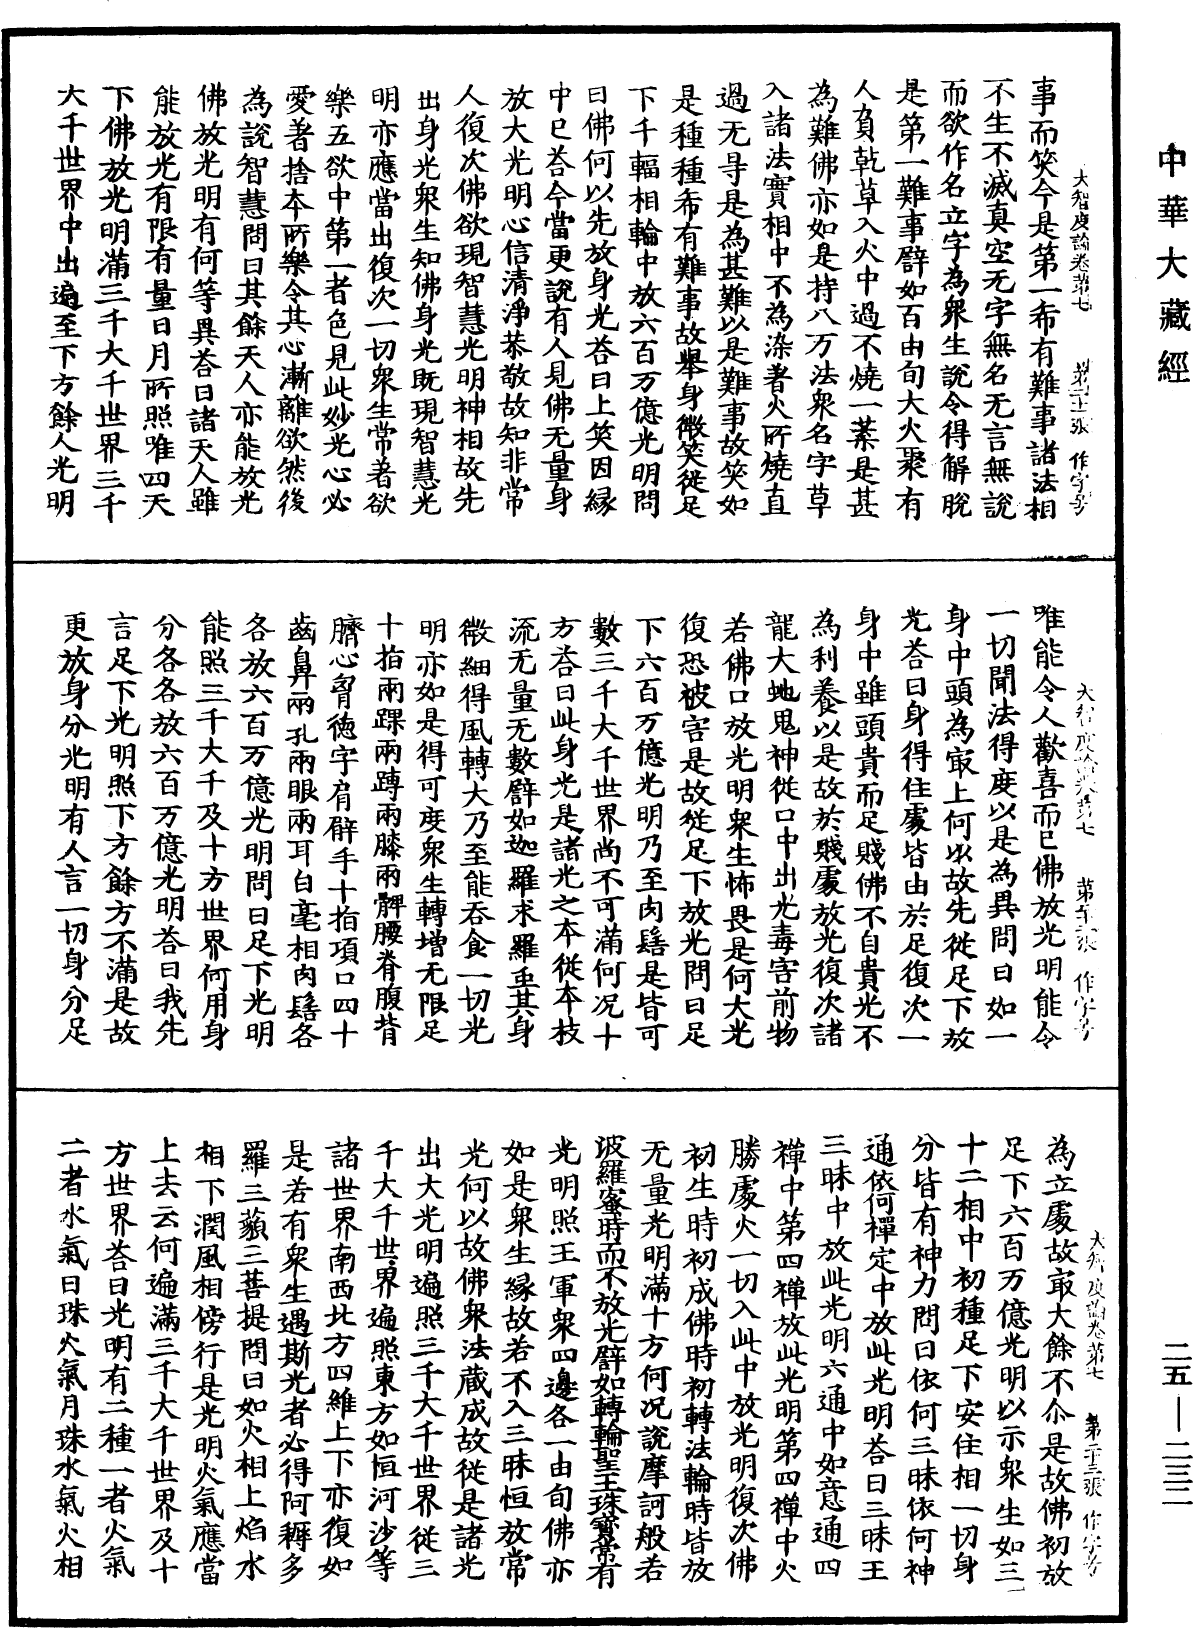 中華大藏經
大智度論卷第七 第二十一張 作字号
事而笑今是第一希有難事諸法相
不生不滅真空无字無名无言無說
而欲作名立字為衆生說令得解脫
是第一難事譬如百由旬大火聚有
人負乾草入火中過不燒一葉是甚
為難佛亦如是持八万法衆名字草
入諸法實相中不為染著火所燒直
過无㝵是為甚難以是難事故笑如
是種種希有難事故舉身微笑從足
下千輻相輪中放六百万億光明問
曰佛何以先放身光荅曰上笑因緣
中已荅今當更說有人見佛无量身
放大光明心信清淨恭敬故知非常
人復次佛欲現智慧光明神相故先
出身光衆生知佛身光既現智慧光
明亦應當出復次一切衆生常著欲
樂五欲中第一者色見此妙光心必
愛著捨本所樂令其心漸離欲然後
為說智慧問曰其餘天人亦能放光
佛放光明有何等異荅曰諸天人雖
能放光有限有量日月所照唯四天
下佛放光明滿三千大千世界三千
大千世界中出遍至下方餘人光明
大智度論卷第七 作字号
唯能令人歡喜而已佛放光明能令
一切聞法得度以是為異問曰如一
身中頭為冣上何以故先從足下放
光荅曰身得住處皆由於足復次一
身中雖頭貴而足賤佛不自貴光不
為利養以是故於賤處放光復次諸
龍大虵鬼神從口中出光毒害前物
若佛口放光明衆生怖畏是何大光
復恐被害是故從足下放光問曰足
下六百万億光明乃至肉髻是皆可
數三千大千世界尚不可滿何況十
方荅曰此身光是諸光之本從本枝
流无量无數譬如迦羅求羅虫其身
微細得風轉大乃至能吞食一切光
明亦如是得可度衆生轉增无限足
十指兩踝兩蹲兩膝兩髀腰脊腹背
臍心胷德字肩臂手十指項口四十
齒鼻兩孔兩眼兩耳白毫相肉髻各
各放六百万億光明問曰足下光明
能照三千大千及十方世界何用身
分各各放六百万億光明荅曰我先
言足下光明照下方餘方不滿是故
更放身分光明有人言一切身分足
大智度論卷第七 第二十三張 作字号
為立處故冣大餘不尒是故佛初放
足下六百万億光明以示衆生如三
十二相中初種足下安住相一切身
分皆有神力問曰依何三昧依何神
通依何禪定中放此光明荅曰三昧王
三昧中放此光明六通中如意通四
禪中第四禪放此光明第四禪中火
勝處火一切入此中放光明復次佛
初生時初成佛時初轉法輪時皆放
无量光明滿十方何況說摩訶般若
波羅蜜時而不放光譬如轉輪聖王珠寶常有
光明照王軍衆四邊各一由旬佛亦
如是衆生緣故若不入三昧恒放常
光何以故佛衆法藏成故從是諸光
出大光明遍照三千大千世界從三
千大千世界遍照東方如恒河沙等
諸世界南西北方四維上下亦復如
是若有衆生遇斯光者必得阿耨多
羅三藐三菩提問曰如火相上焰水
相下潤風相傍行是光明火氣應當
上去云何遍滿三千大千世界及十
方世界荅曰光明有二種一者火氣
二者水氣日珠火氣月珠水氣火相
二五—二三二